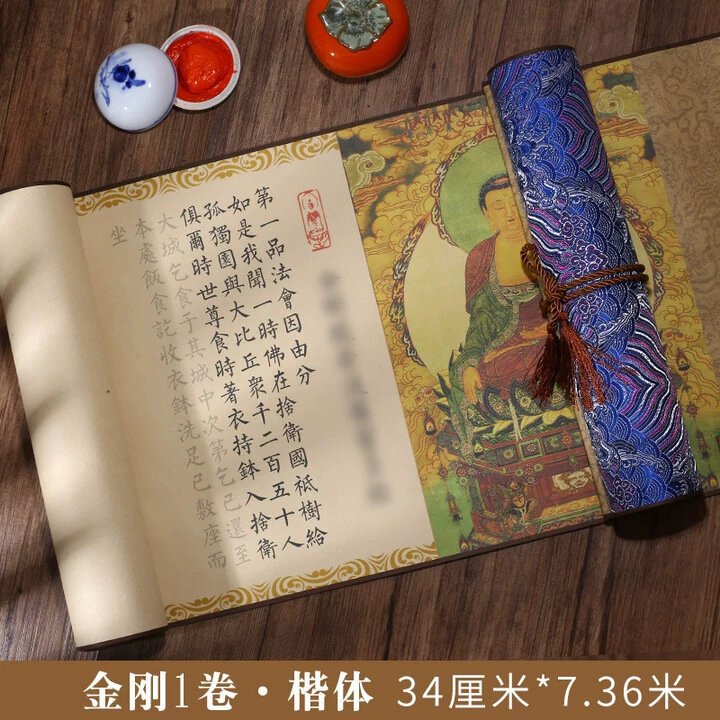 第一品法會因由分
如是我聞一時佛在捨衛國祇樹給
孤獨園與大比丘衆千二百五十人
俱爾時世尊食時著衣持鉢入捨衛
大城乞食于其城中次第乞已還至
本處飯食訖收衣鉢洗足已敷座而
坐
金刚1卷·楷体 34厘米*7.36米